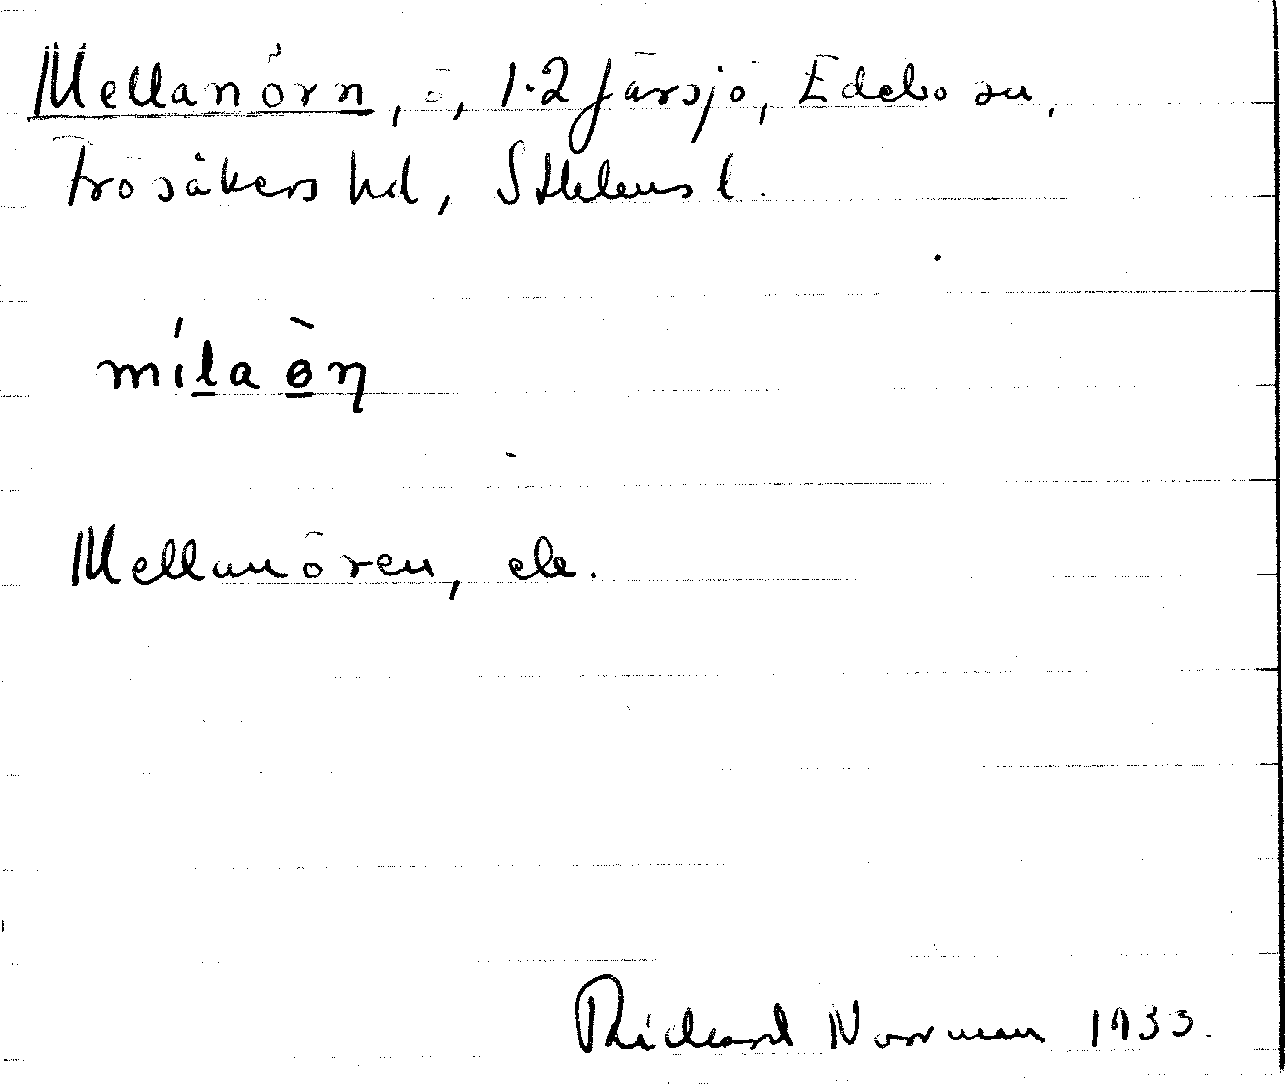 Mellanörn, ö, 1.2 Järsjö, Edebo sn,
Frösåkers hd, Sthlms l.
mila øn
Mellanören, ek.
Rickard Norman 1933.